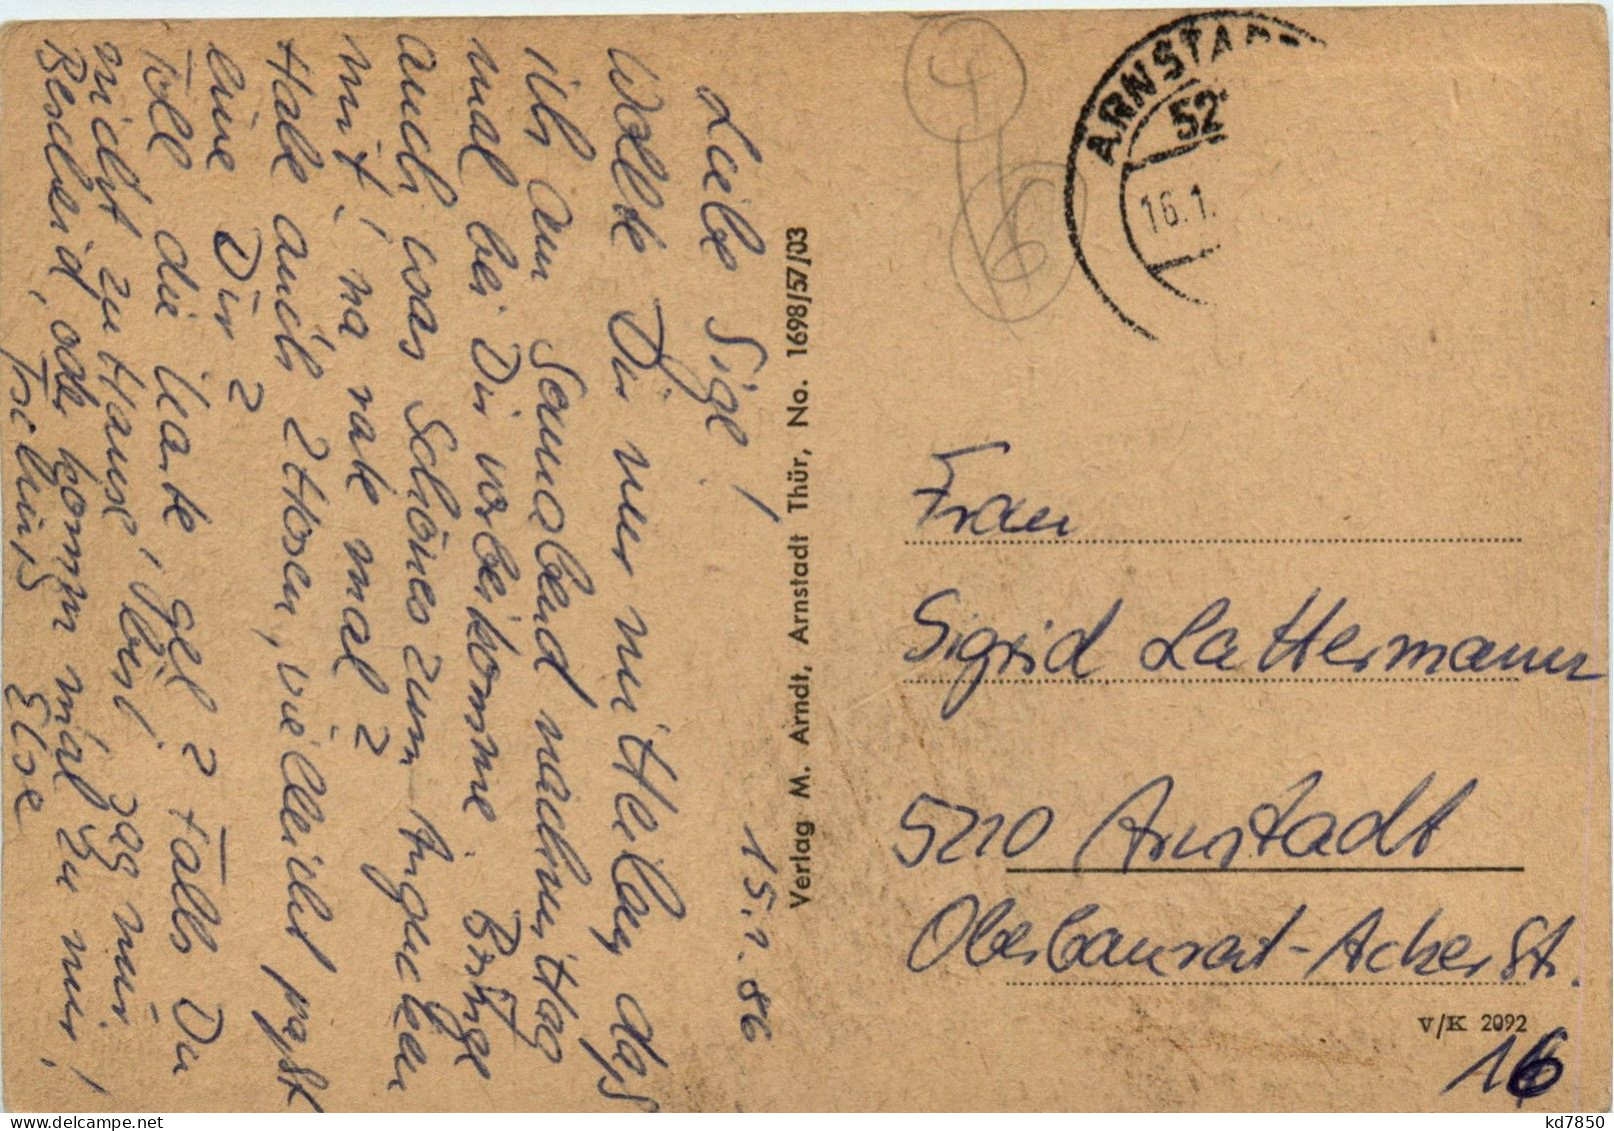 15.1.86
Liebe Sige!
Wollte Dir nur mitteilen, daß
ich am Sonnabend nachmittag
mal bei Dir vorbeikomme. Bringe
auch was Schönes zum Angucken
mit, na rate mal?
Habe auch 2 Hosen, vielleicht paßt
eine Dir?
Toll die Karte, gel? Falls Du
nicht zu Hause bist, sag mir
Bescheid, oder komm mal zu mir!
Tschüß Else
Verlag M. Arndt, Arnstadt Thür, No. 1698/57/03
ARNSTADT
52
16.1.
4
6
Frau
Sigrid Lattermann
5210 Arnstadt
Oberbaurat-Acker Str.
V/K 2092
16
kd7850